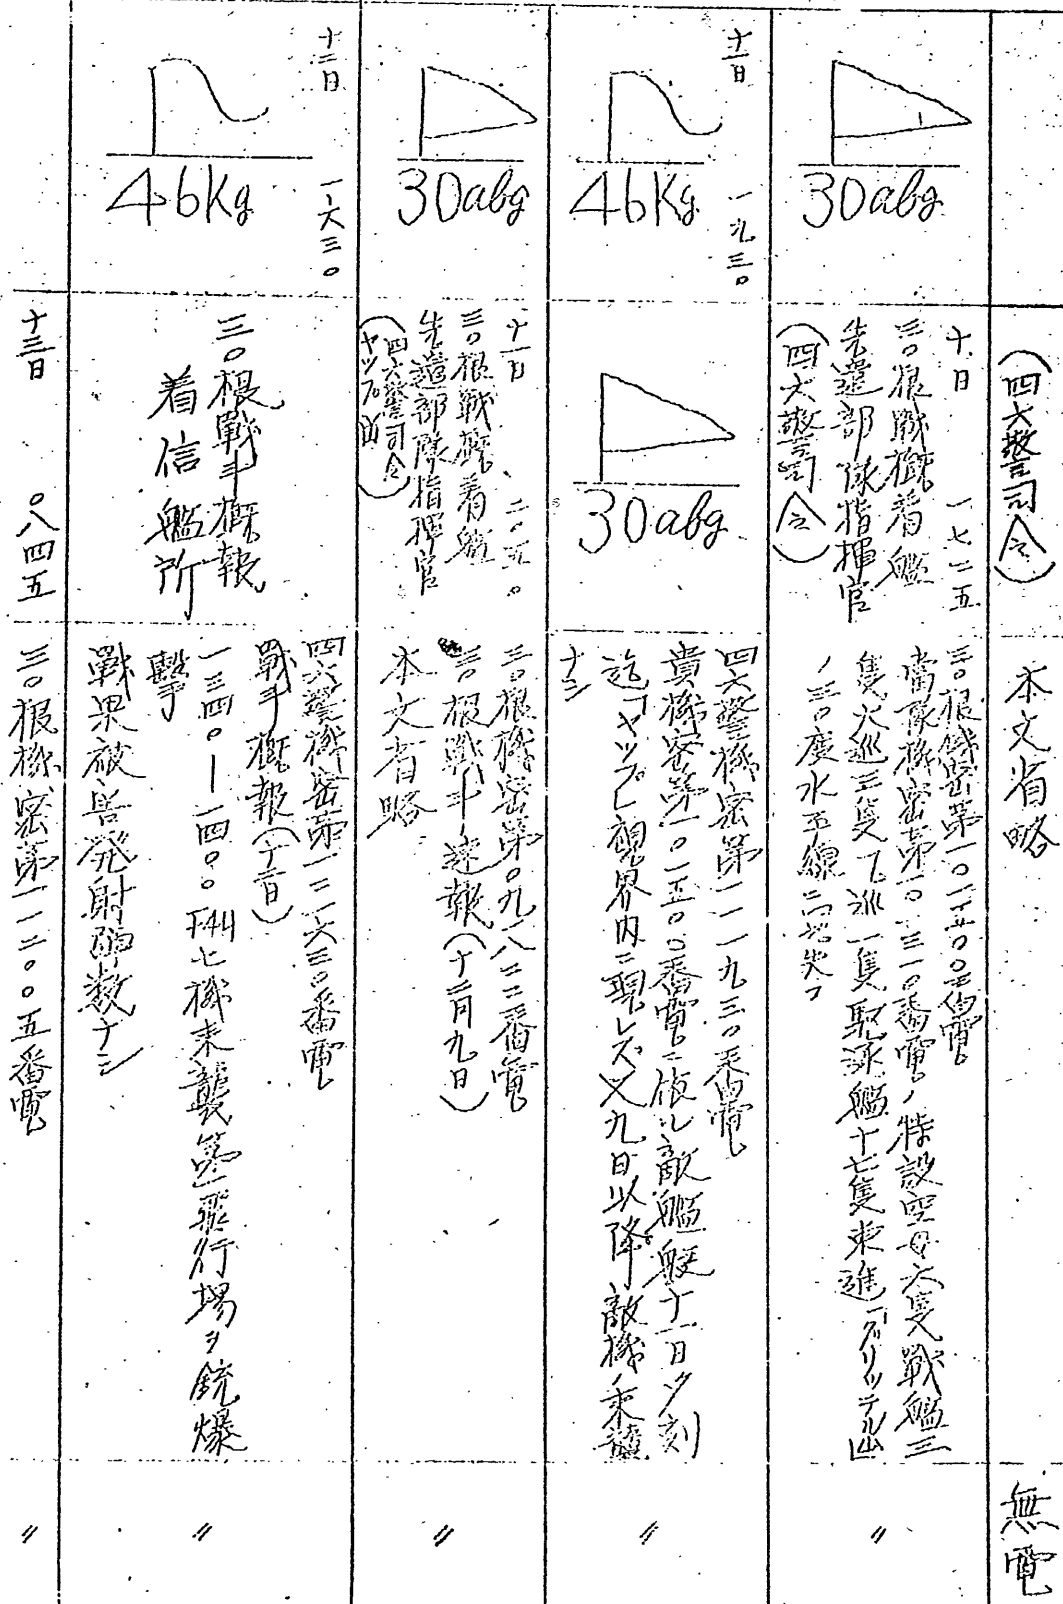 (四六警司令)
本文省略
無電
30abg
十日 一七二五
三〇根戦機着艦
先遣部隊指揮官
(四六警司令)
三〇根機密第一〇一七〇〇番電
当隊機密第一〇一三一〇番電ノ特設空母六隻戦艦三
隻大巡三隻乙巡一隻駆逐艦十七隻東進
ノ三〇度水平線ニ
〃
十一日 一九三〇
46Kg
30abg
四六警機密第一一一九三〇番電
貴機密第一〇一五〇〇番電ニ依ル敵艦艇十一日夕刻
迄「ヤップ」視界内ニ現レズ又九日以降敵機ノ来襲
ナシ
〃
30abg
十一日 二〇五〇
三〇根戦機着艦
先遣部隊指揮官
(四六警司令)
ヤップ
三〇根機密第〇九一八二二番電
三〇根戦斗速報(十二月九日)
本文省略
〃
十二日 一六三〇
46Kg
三〇根戦斗概報
着信艦所
四六警機密第一二一六三〇番電
戦斗概報(十二日)
一三四〇―一四〇〇 F4U七機来襲第一飛行場ヲ銃爆
撃
戦果被害発射弾数ナシ
〃
十三日 〇八四五
三〇根機密第一一二〇〇五番電
〃